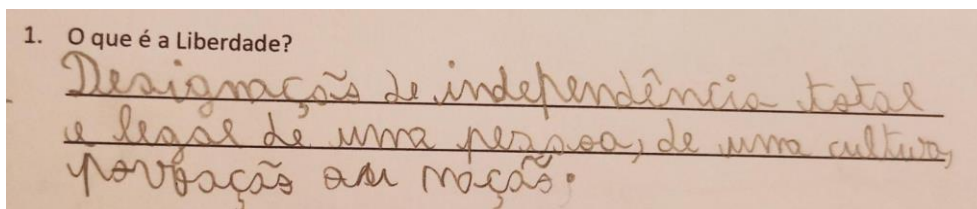 1. O que é a Liberdade?
Designação de independência total
e legal de uma pessoa, de uma cultura,
povoação ou nação.